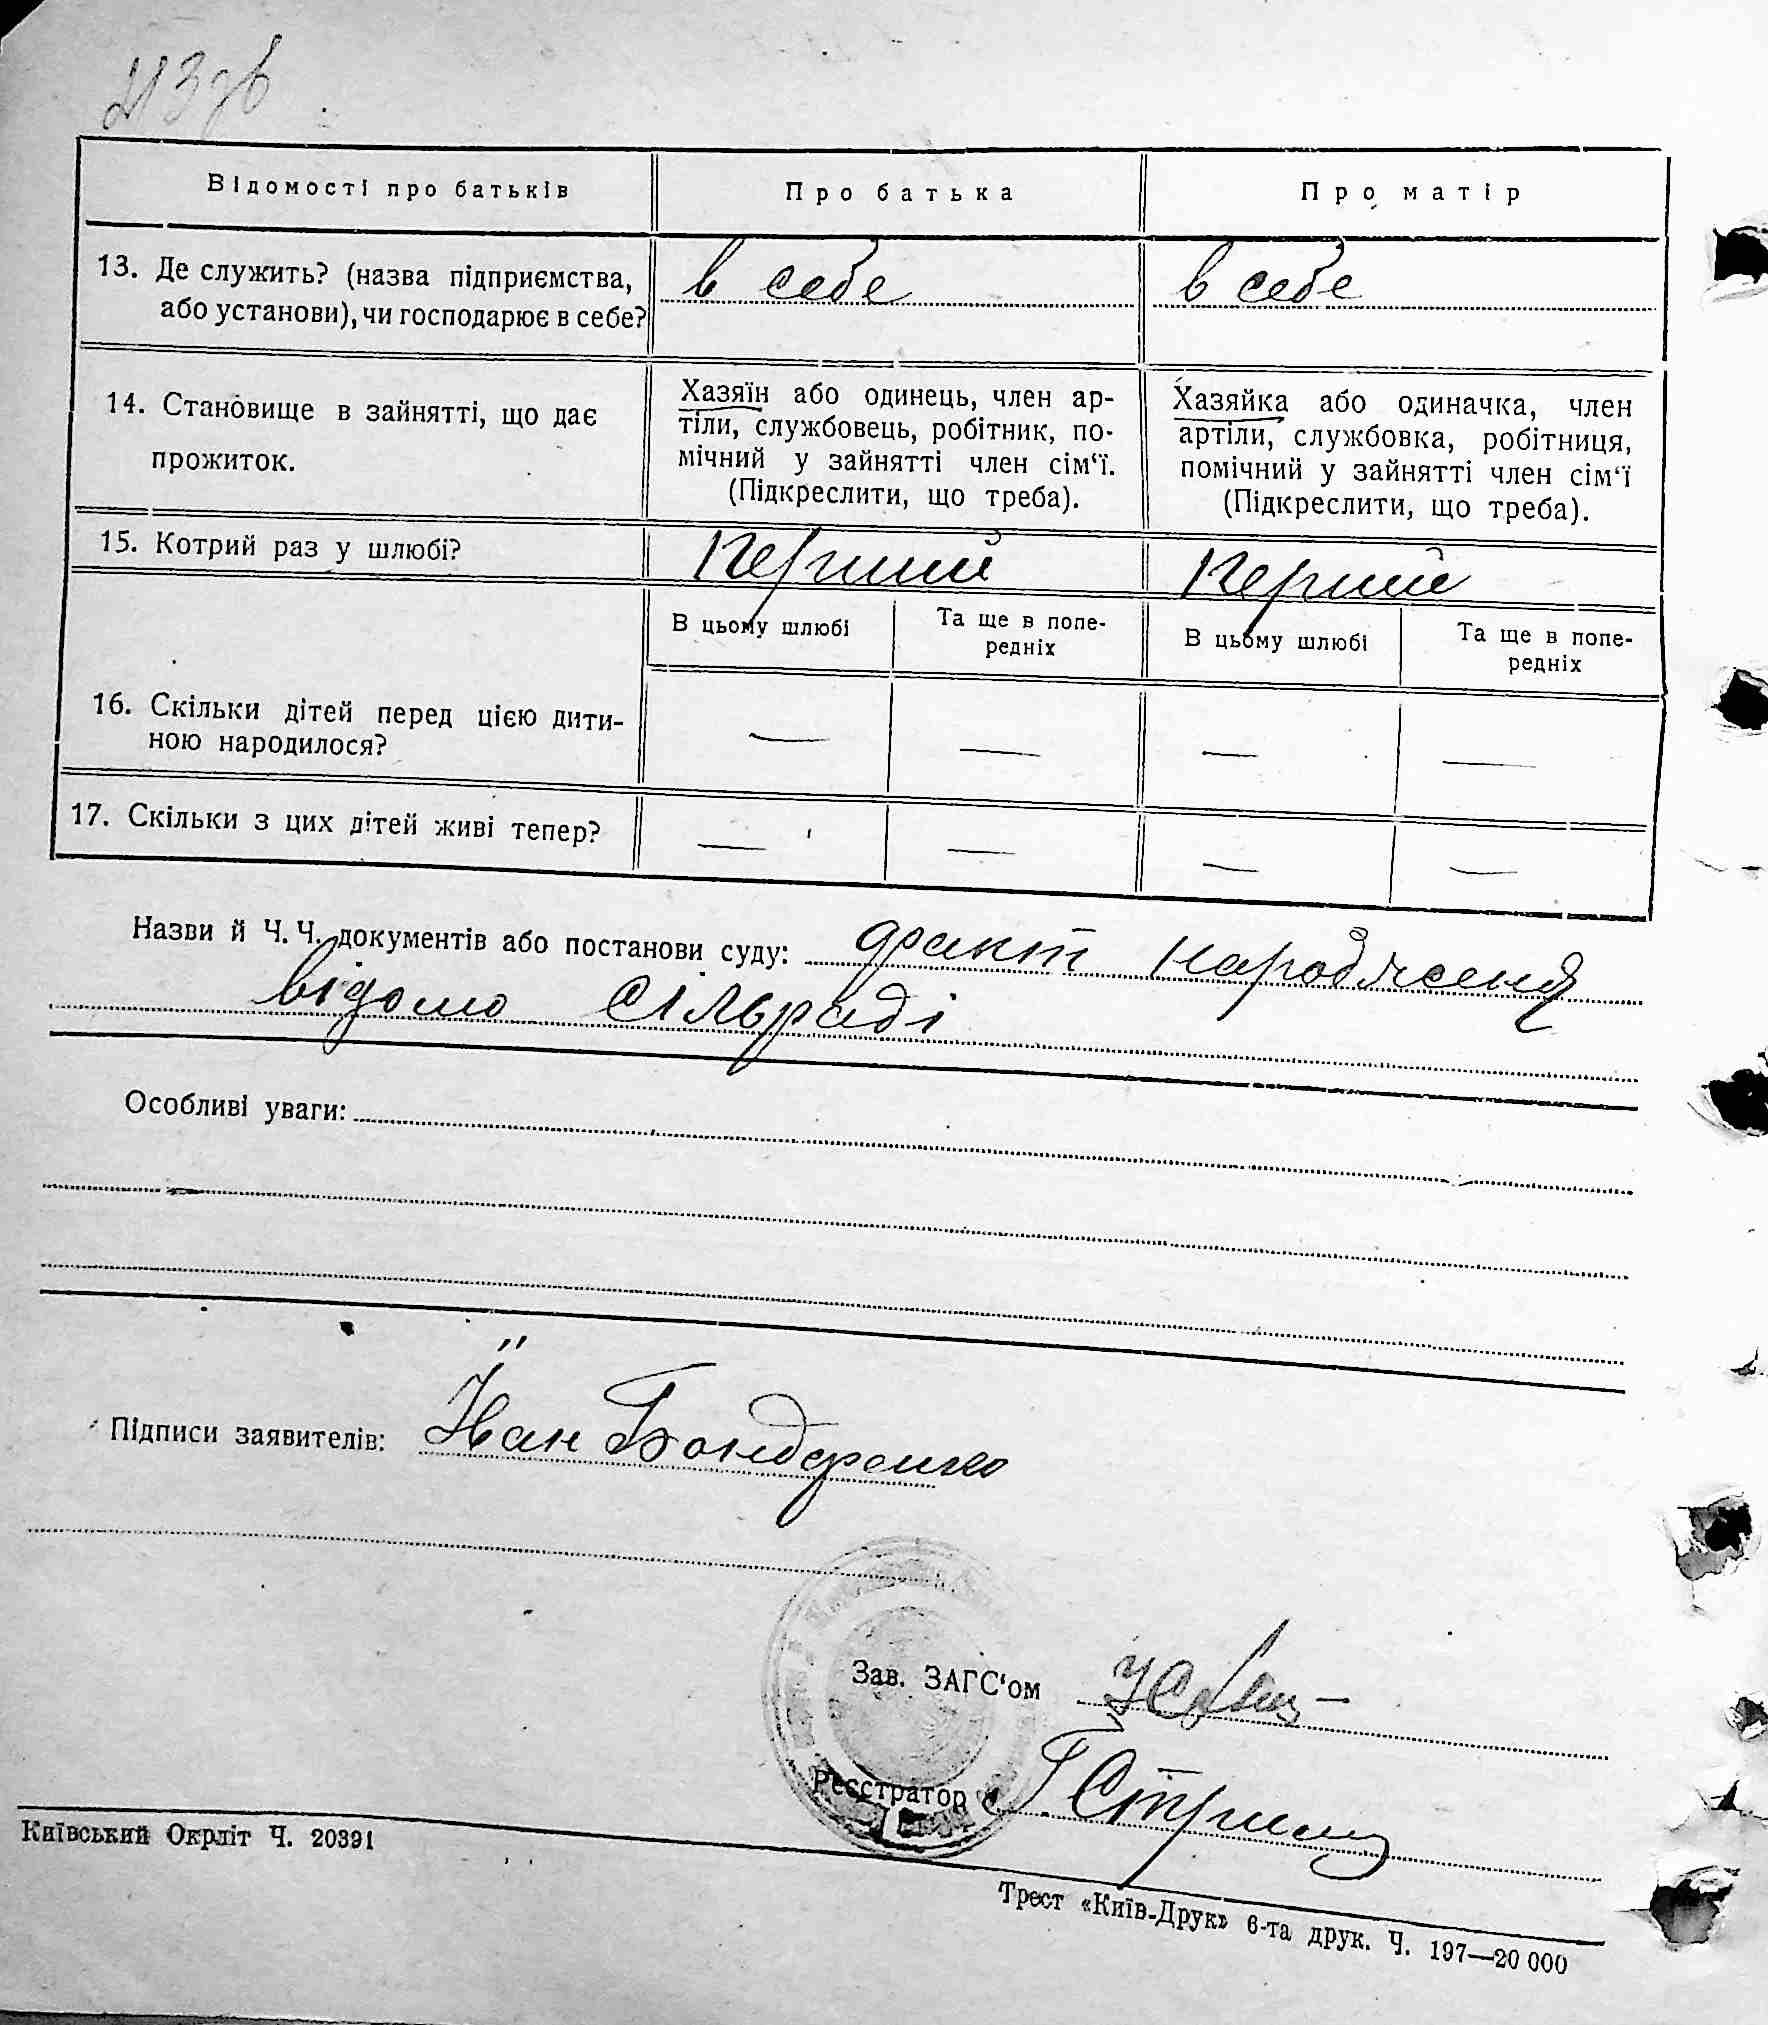 213 зв
Відомості про батьків
Про батька
Про матір
13. Де служить? (назва підприємства,
або установи), чи господарює в себе?
в себе
в себе
14. Становище в зайнятті, що дає
прожиток.
Хазяїн або одинець, член ар-
тіли, службовець, робітник, по-
мічний у зайнятті член сім‘ї.
(Підкреслити, що треба).
Хазяйка або одиначка, член
артіли, службовка, робітниця,
помічний у зайнятті член сім‘ї
(Підкреслити, що треба).
15. Котрий раз у шлюбі?
Перший
Перший
В цьому шлюбі
Та ще в попе-
редніх
В цьому шлюбі
Та ще в попе-
редніх
16. Скільки дітей перед цією дити-
ною народилося?
— — — —
17. Скільки з цих дітей живі тепер?
— — — —
Назви й Ч. Ч. документів або постанови суду: факт народження
відомо сільраді
Особливі уваги:
Підписи заявителів: Іван Бондаренко
Зав. ЗАГС‘ом
Реєстратор
Київський Окрліт Ч. 20391
Трест «Київ-Друк» 6-та друк. Ч. 197—20 000